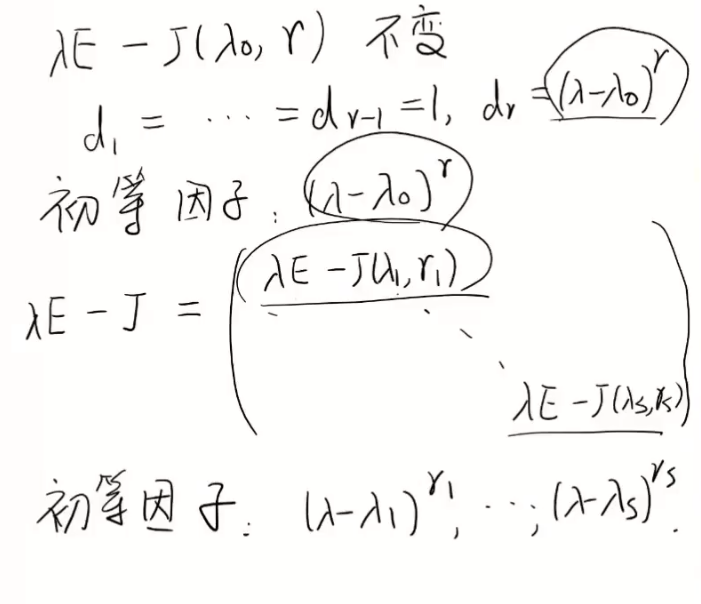 λE - J(λ₀, r) 不变
d₁ = ⋯ = dᵣ₋₁ = 1, dᵣ = (λ-λ₀)ʳ
初等因子: (λ-λ₀)ʳ
λE - J = ( λE - J(λ₁, r₁)
⋱
λE - J(λₛ, rₛ) )
初等因子: (λ-λ₁)^r₁, ⋯, (λ-λₛ)^rₛ.